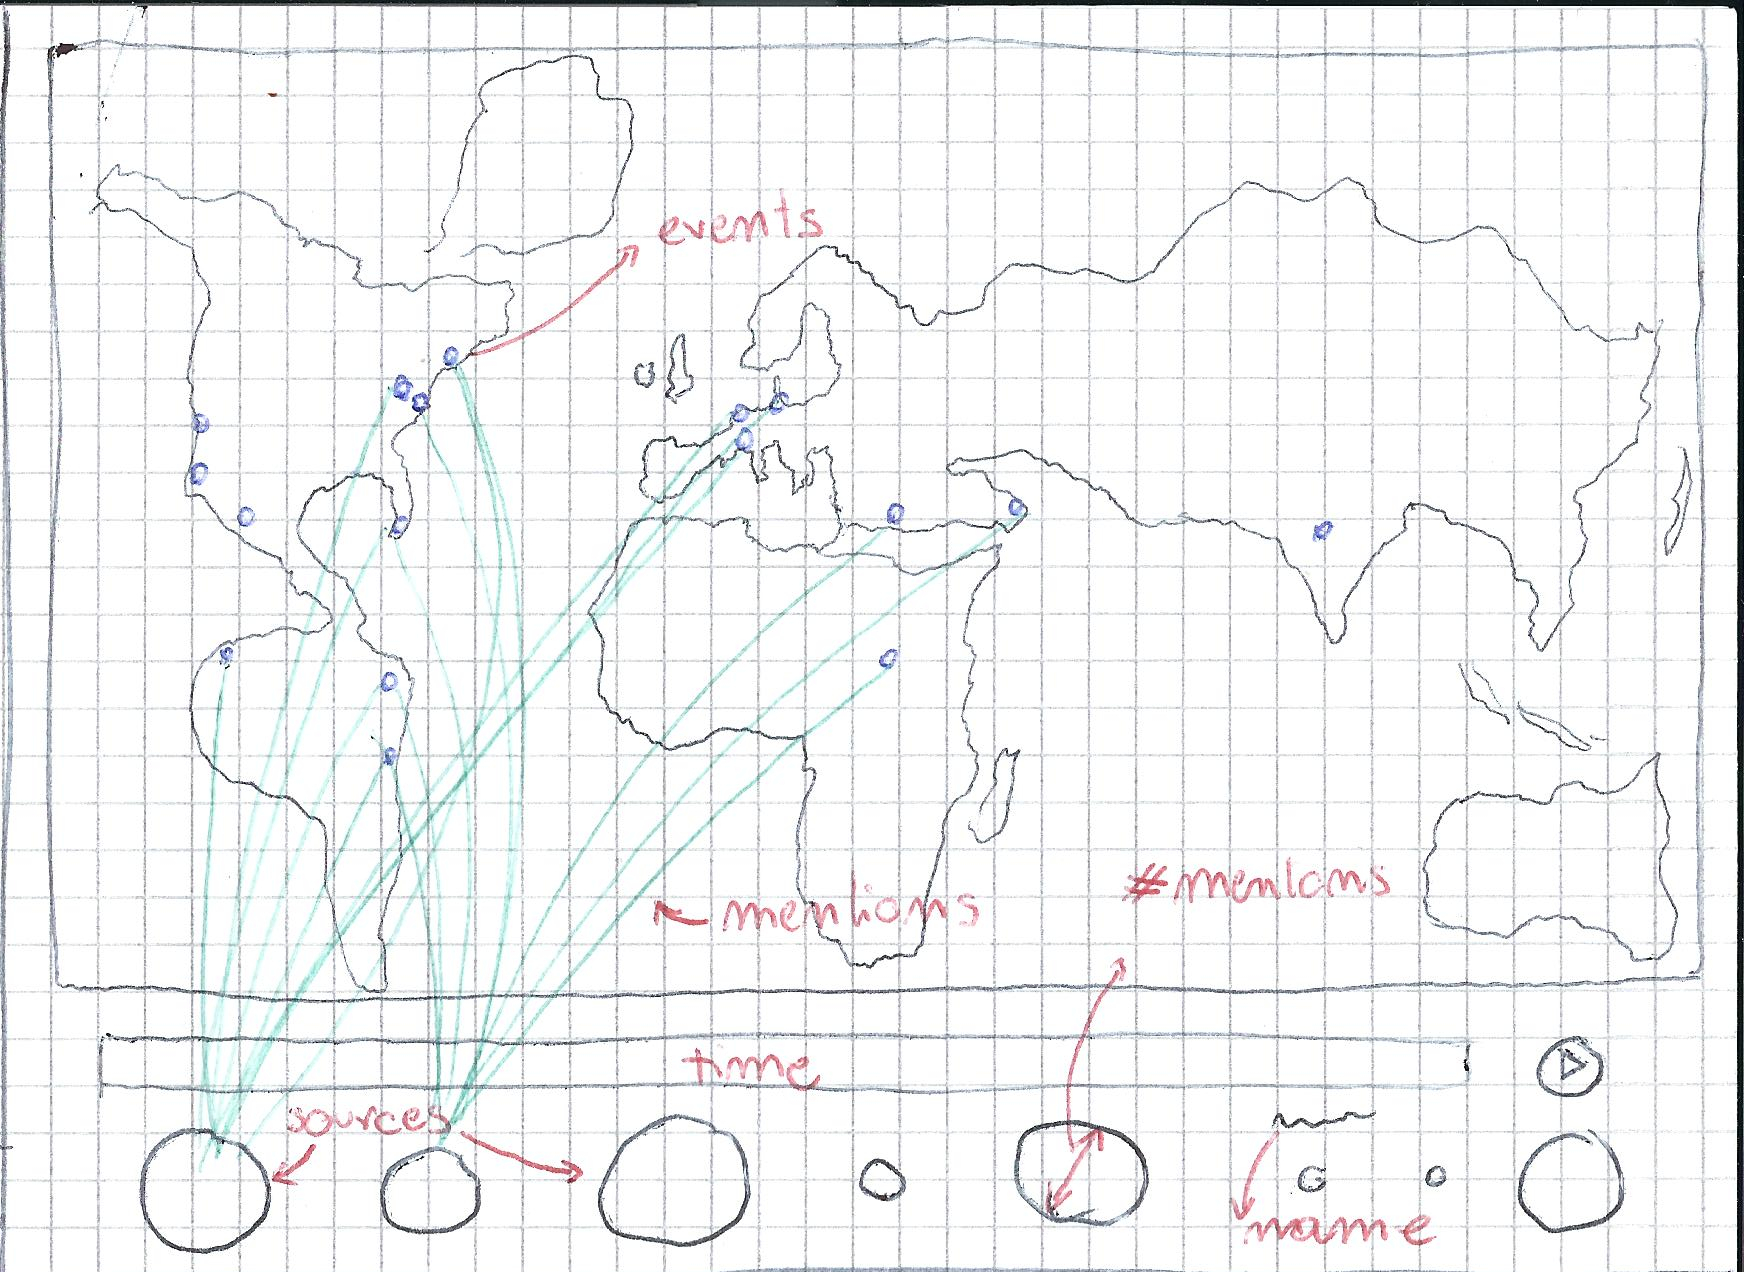 events
mentions
#mentons
time
sources
name